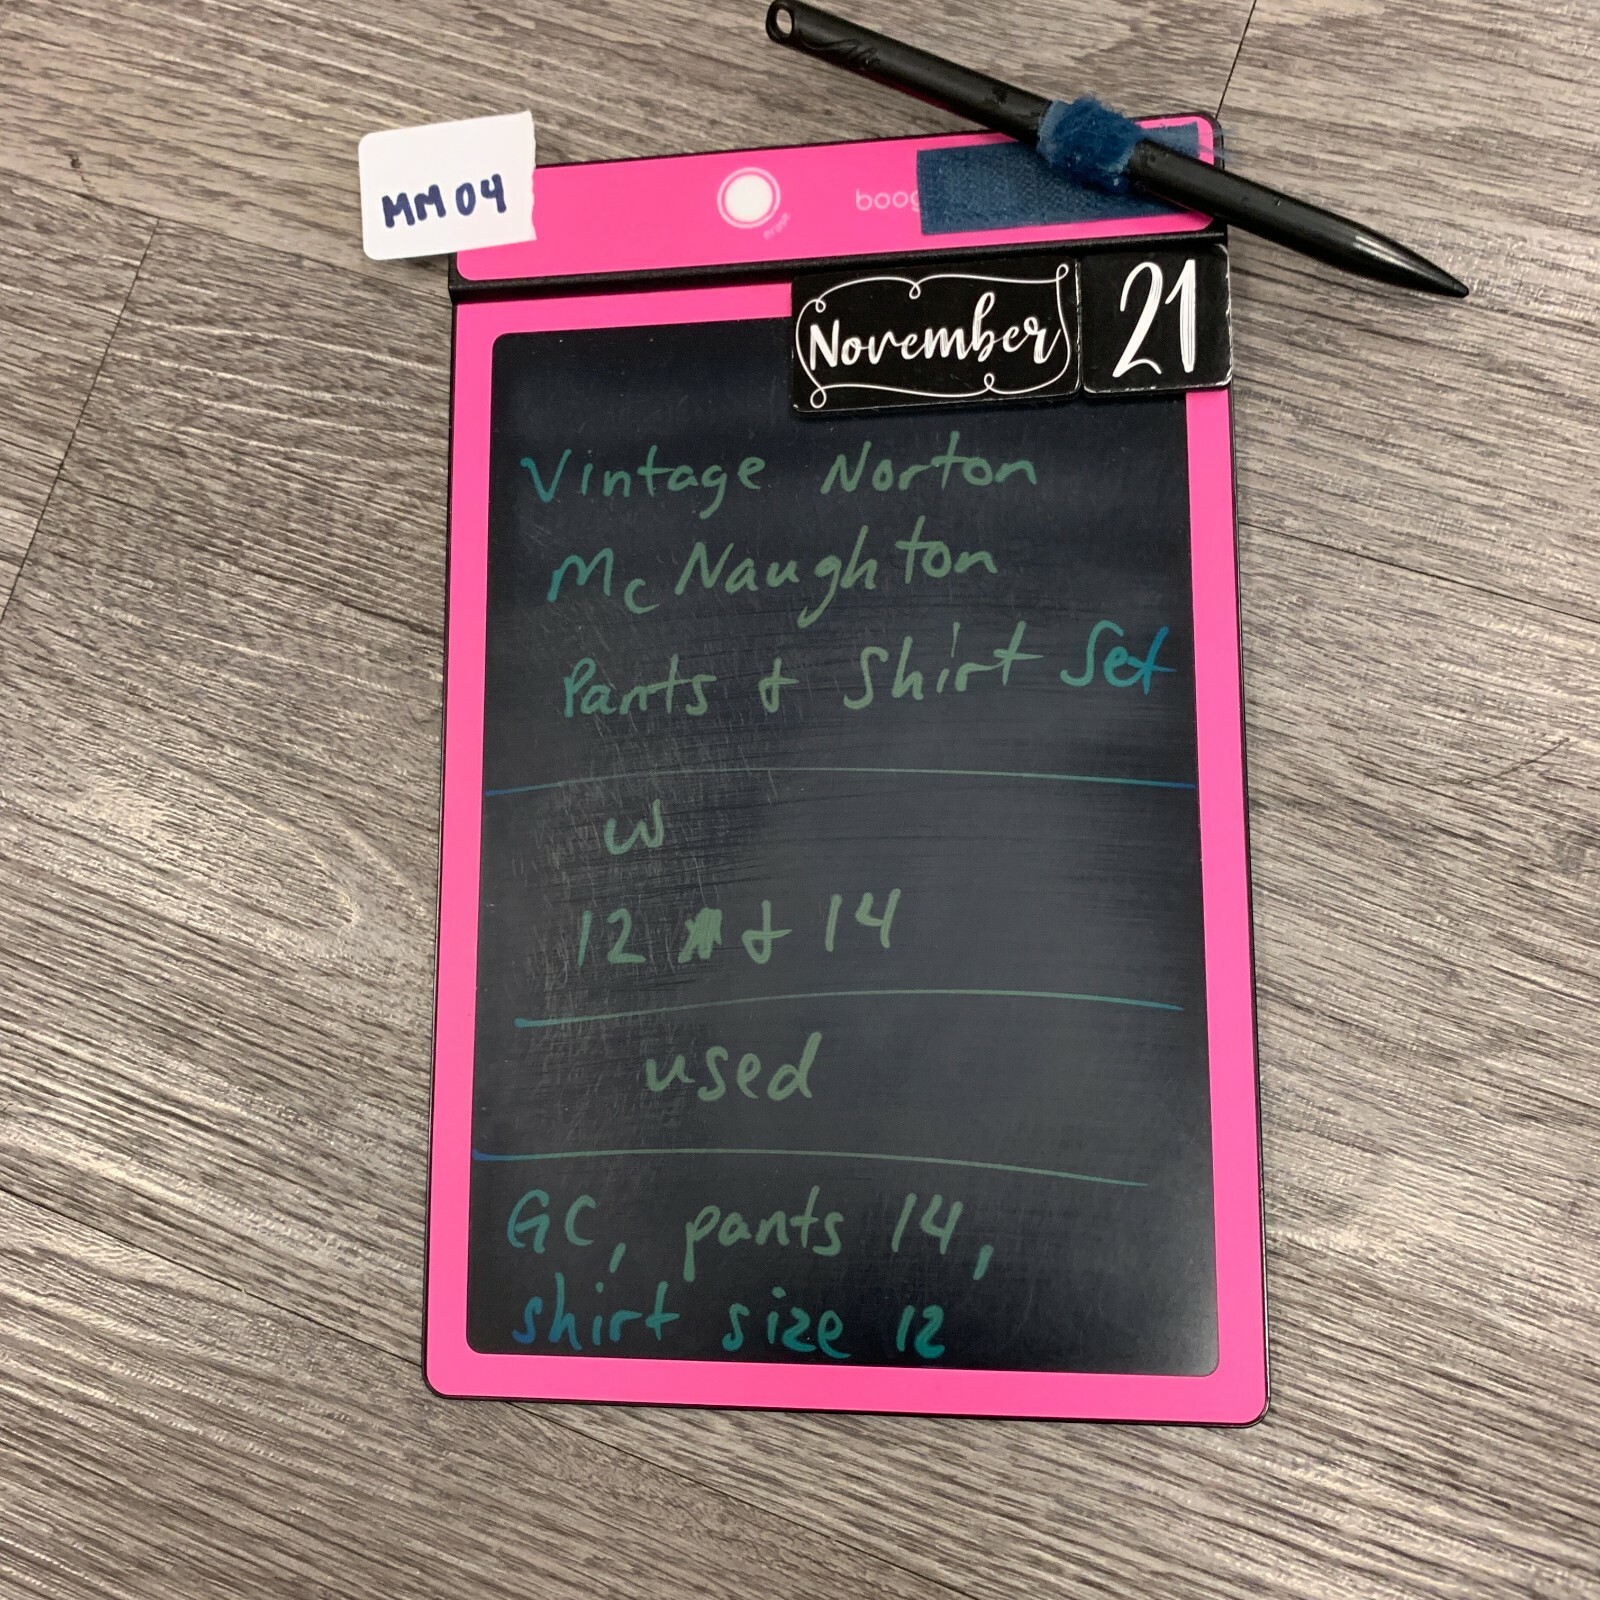 MM04
erase
boog
November 21
Vintage Norton
McNaughton
Pants & Shirt Set
W
12 & 14
used
GC, pants 14,
shirt size 12